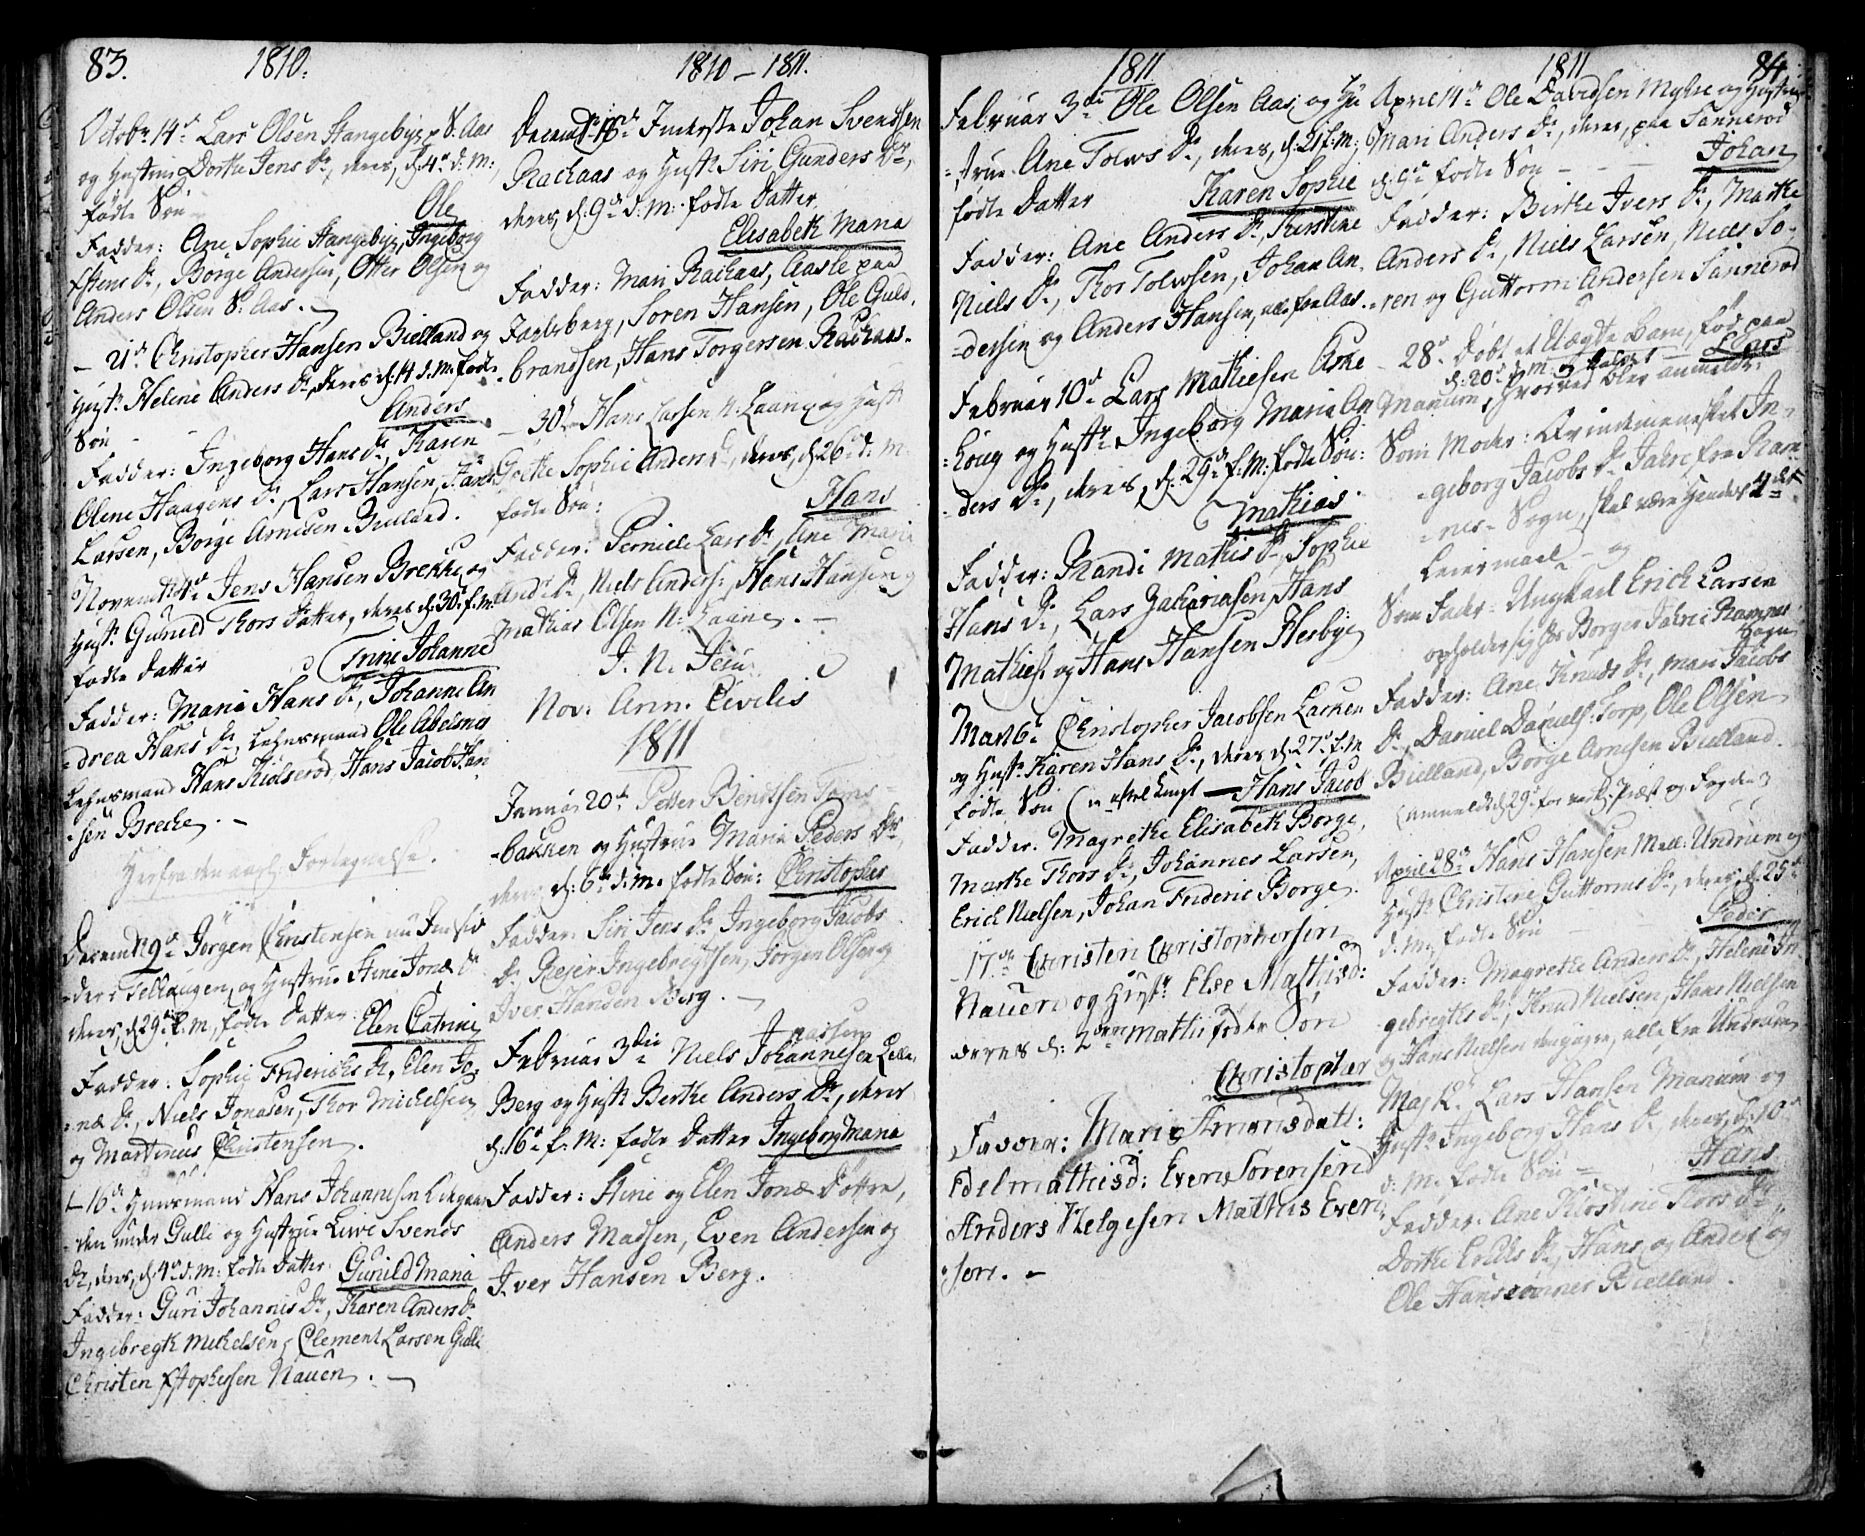 83. 1810.
Octobr 14de Lars Olsen Hangebye S. Aas
og Hustrue Dorthe Jens Dr, deres, d. 4de d. M:
fødte Søn
Ole
Fadder: Ane Sophie Hangebye, Ingeborg
Estens Dr, Borge Andersen, Otter Olsen og
Anders Olsen S. Aas. -
- 21de Christopher Hansen Bielland og
Hustr. Helene Anders Dr, deres d. 14 d. M. fødte
Søn -
Anders
Fadder: Ingeborg Hans Dr, Karen
Olene Haagens Dr, Lars Hansen, Hans
Larsen, Børge Arnesen Bielland.
Novembr Jens Hansen Brekke og
Hustr. Gunild Thors Datter, deres d. 30te f. M.
fødte Datter
Trine Johanne
Fadder: Marie Hans Dr, Johanne An
-drea Hans Dr, Lehnsmand Ole Abelsnes
Lehnsmand Hans Kiølserod, Hans Jacob Han
-sen Breche. -
Herfra den aarl. Fortegnelse.
Decembr 9de Jørgen Christensen nu
-der Tellaugen, og Hustrue Stine Jonæ Dr
deres, d. 29de f. M, fødte Datter
Elen Catrine
Fadder: Sophie Friderichs Dr, Elen Jo-
næ Dr, Niels Jonasen, Thor Michelsen
og Martinus Christensen.
- 16de Huusmand Hans Johannesen
-den under Gulli og Hustrue Live Svends
Dr, deres, d. 4de d. M: fødte Datter
Gunild Maria
Fadder: Guri Johannis Dr, Karen Anders Dr
Ingebregth Michelsen, Clement Larsen Gulli
Christen Xstophersen Nauen. -
1810 - 1811.
Decembr 16de Inderste Johan Svendsen
Rachaas og Hustr. Siri Gunders Dr,
deres, d. 9de d. M. fødte Datter
Elisabeth Maria
Fadder: Mari Rachaas, Aaste paa
Jarlsberg, Soren Hansen, Ole Guld-
brandsen, Hans Torgersen Rachaas.
- 30te Hans Larsen N. Laane og Hustr.
Dorthe Sophie Anders Dr, deres, d. 26de d. M.
fødte Søn:
Hans
Fadder: Pernille Lars Dr, Ane Marie
Anders Dr, Niels Anders:, Hans Hansen og
Mathias Olsen N. Laane. -
J. N. Jesu
Nov. Ann. Civilis
1811
Januar 20de Petter Bendtsen Toms-
bakken og Hustrue Maria Peders Dr,
deres d. 6te d. M. fødte Søn: Christopher
Fadder: Siri Jens Dr Ingeborg Jacobs
Dr Reier Ingebregtsen, Jørgen Olsen og
Iver Hansen Berg. -
Februar 3die Niels Johannesen Lille
Berg og Hustr. Berthe Anders Dr, deres
d. 16de f. M: fødte Datter Ingeborg Maria
Fadder: Stine og Elen Jonæ Døttre,
Anders Madsen, Even Andersen og
Iver Hansen Berg.
1811
Februar 3de Ole Olsen Aas og Hu
-strue Ane Tolws Dr, deres, d. 21 f. M:
fødte Datter
Karen Sophie
Fadder: Ane Anders Dr, Kirstine
Niels Dr, Thor Tolwsen, Johan An-
dersen og Anders Hansen, alle fra Aas.
Februar 10de Lars Mathiesen Aske
-houg og Hustr. Ingeborg Maria An
-ders Dr, deres, d. 29de f. M: fødte Søn:
Mathias.
Fadder: Randi Mathis Dr, Sophie
Hans Dr, Lars Zachariasen, Hans
Mathies: og Hans Hansen Hesbye
Marts 6te Christopher Jacobsen Larken
og Hustr. Karen Hans Dr, deres d. 27de f. M
fødte Søn - Hans Jacob
Fadder: Magrethe Elisabeth Borge,
Marthe Thors Dr, Johannes Larsen,
Erich Nielsen, Johan Frideric Borge.
- 17de Christen Christophersen
Nauen og Hustr: Else Mathisd:
deres d: 2den Martii fødte Søn
Christopher
Fadder: Marie Amonsdatt:
Edel mathisd: Even Sorensen
Anders Helgesen Mathis Even
-sen. -
1811 84.
April 14de Ole Davidsen Myhre og Hustrue
Mari Anders Dr, deres, paa Sannerød
d. 9de fødte Søn -
Johan
Fadder: Birthe Ivers Dr, Marthe
Anders Dr, Niels Larsen, Niels So-
ren og Guttorm Andersen Sannerød
- 28de Døbt et Uægte Barn, fød paa
Manum, d. 20de d. M. og kaldet - Lars
hvorved blev anmeldt:
Som Moder: Qvindemennesket In-
-geborg Jacobs Dr Jahre fra Ram-
nes Sogn, skal være hendes 4de
Leiermaal - og
Som Fader: Ungkarl Erich Larsen
opholder sig hos Borger Jahre Ramnes
Sogn
Fadder: Ane Knuds Dr, Mari Jacobs
Dr, Daniel Daniels: Torp, Ole Olsen
Bielland, Børge Arnesen Bielland.
(anmeldt d. 29de for verdsl. Præst og Fogden)
April 28de Hans Hansen Mell: Undrum og
Hustr. Christine Guttorms Dr, deres d. 25de
d. M. fødte Søn
Peder
Fadder: Magrethe Anders Dr, Helene In
-gebregths Dr, Knud Nielsen, Hans Nielsen
og Hans Nielsen, alle fra Undrum
Maj 12te Lars Hansen Manum og
Hustr. Ingeborg Hans Dr, deres, d. 10de
d. M. fødte Søn -
Hans
Fadder: Ane Kirstine Thors Dr,
Dorthe Eolds Dr, Hans og Anders og
Ole Hanssønner Bielland.